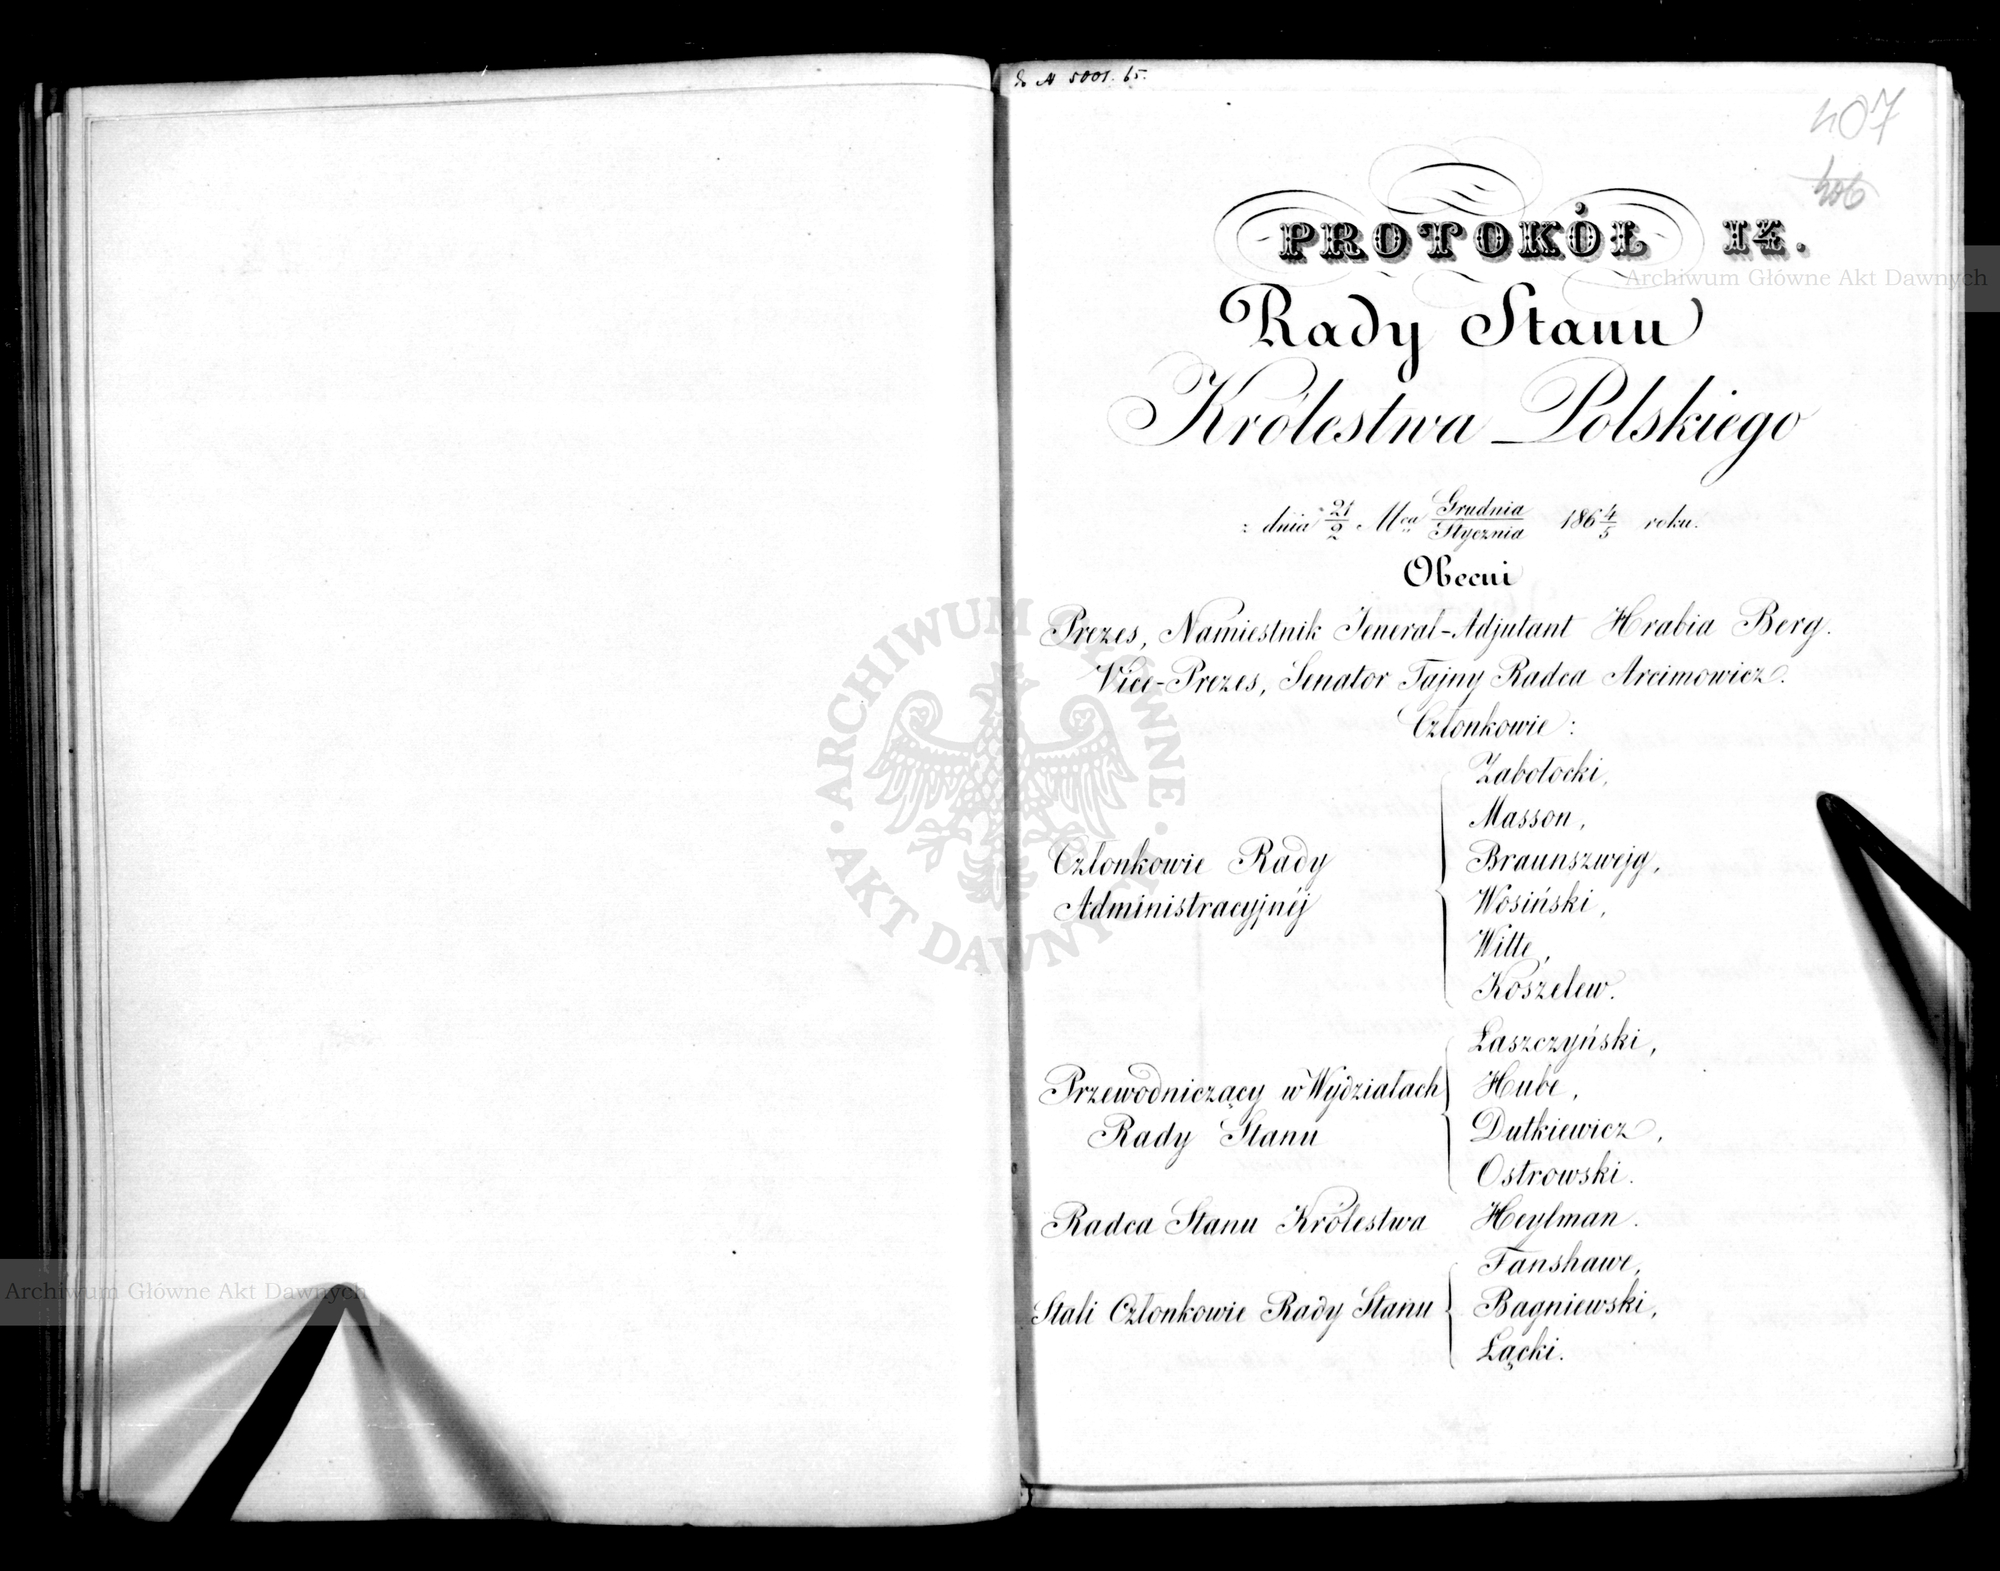 № 5001. 65.
407
406
PROTOKÓŁ 14.
Rady Stanu
Królestwa Polskiego
z dnia 21/2 Mca Grudnia/Stycznia 1864/5 roku.
Obecni
Prezes, Namiestnik Jenerał-Adjutant Hrabia Berg.
Vice-Prezes, Senator Tajny Radca Arcimowicz.
Członkowie:
Członkowie Rady Administracyjnéj
Zabołocki,
Masson,
Braunszwejg,
Wosiński,
Witte,
Koszelew.
Przewodniczący w Wydziałach Rady Stanu
Łaszczyński,
Hube,
Dutkiewicz,
Ostrowski.
Radca Stanu Królestwa Heylman.
Stali Członkowie Rady Stanu
Fanshawe,
Bagniewski,
Łącki.
Archiwum Główne Akt Dawnych
ARCHIWUM GŁÓWNE · AKT DAWNYCH ·
Archiwum Główne Akt Dawnych